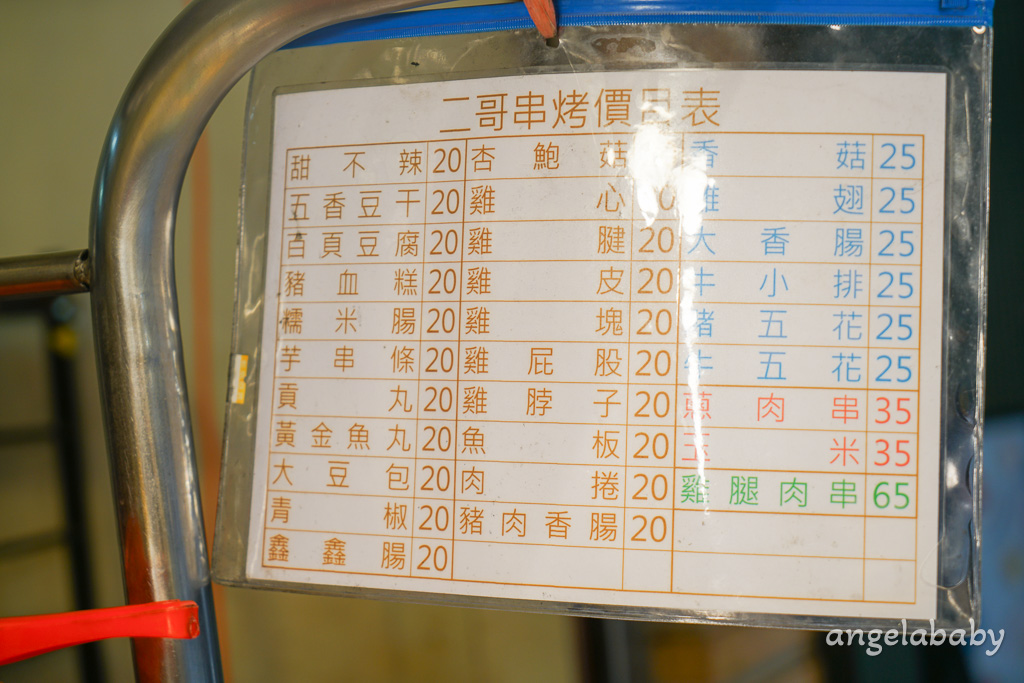 二哥串烤價目表
甜不辣 20 杏鮑菇 香菇 25
五香豆干 20 雞心 20 雞翅 25
百頁豆腐 20 雞腱 20 大香腸 25
豬血糕 20 雞皮 20 牛小排 25
糯米腸 20 雞塊 20 豬五花 25
芋串條 20 雞屁股 20 牛五花 25
貢丸 20 雞脖子 20 蔥肉串 35
黃金魚丸 20 魚板 20 玉米 35
大豆包 20 肉捲 20 雞腿肉串 65
青椒 20 豬肉香腸 20
鑫鑫腸 20
angelababy